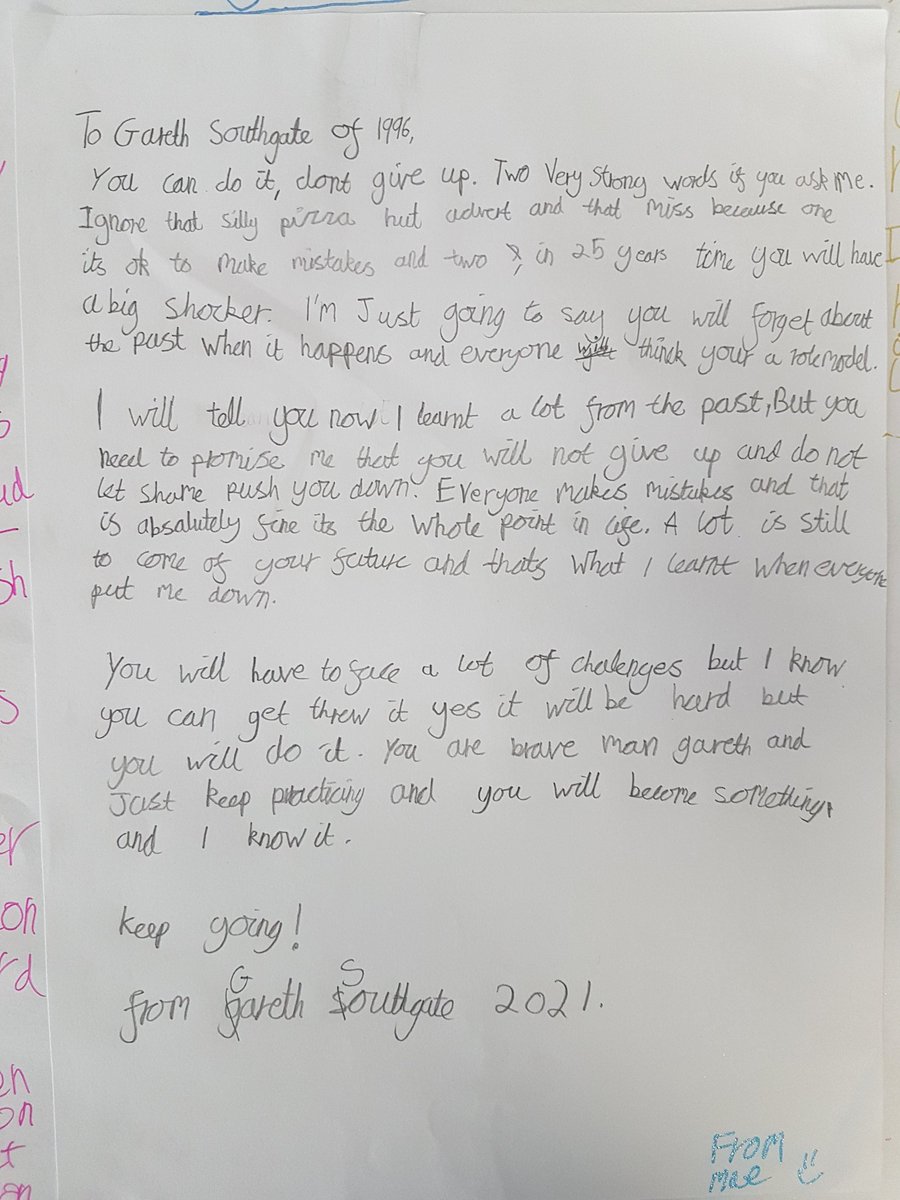 To Gareth Southgate of 1996,
You can do it, dont give up. Two Very Strong words if you ask me.
Ignore that silly pizza hut advert and that miss because one
its ok to make mistakes and two , in 25 years time you will have
a big shocker. I'm Just going to say you will forget about
the past when it happens and everyone will thinck your a rolemodel.
I will tell you now I learnt a lot from the past, But you
need to promise me that you will not give up and do not
let shame push you down. Everyone makes mistakes and that
is absalutely fine its the whole point in life. A lot is still
to come of your future and thats what I learnt when everyone
put me down.
You will have to face a lot of chalenges but I know
you can get threw it yes it will be hard but
you will do it. You are brave man gareth and
Just keep practicing and you will become something,
and I know it.
keep going!
from Gareth Southgate 2021.
From
mae